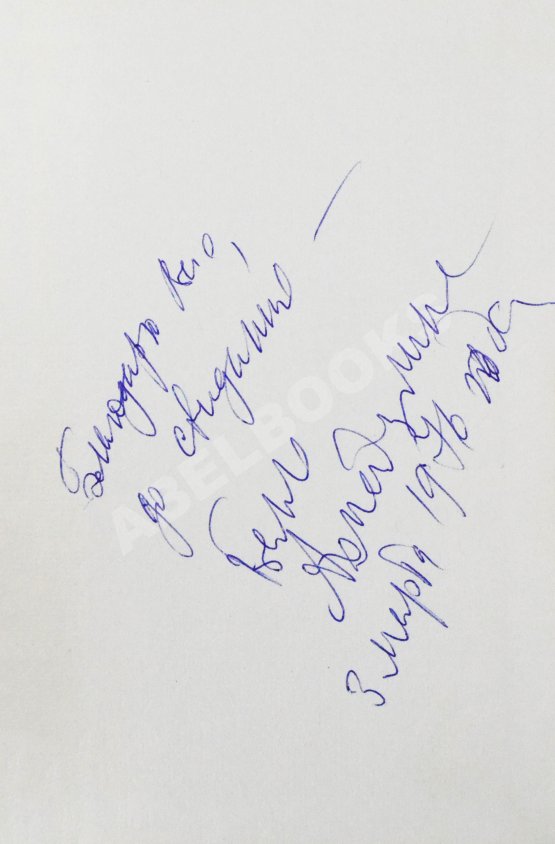 Благодарю Вас,
до свидания,
Белла
Ахмадулина
3 марта 1976 года
ABELBOOK